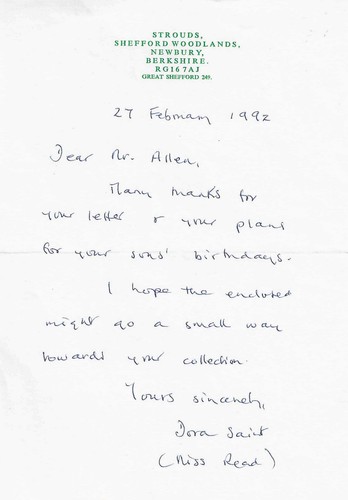 STROUDS,
SHEFFORD WOODLANDS,
NEWBURY,
BERKSHIRE.
RG16 7AJ
GREAT SHEFFORD 249.
27 February 1992
Dear Mr. Allen,
Many thanks for
your letter & your plans
for your sons' birthdays.
I hope the enclosed
might go a small way
towards your collection.
Yours sincerely,
Dora Saint
(Miss Read)